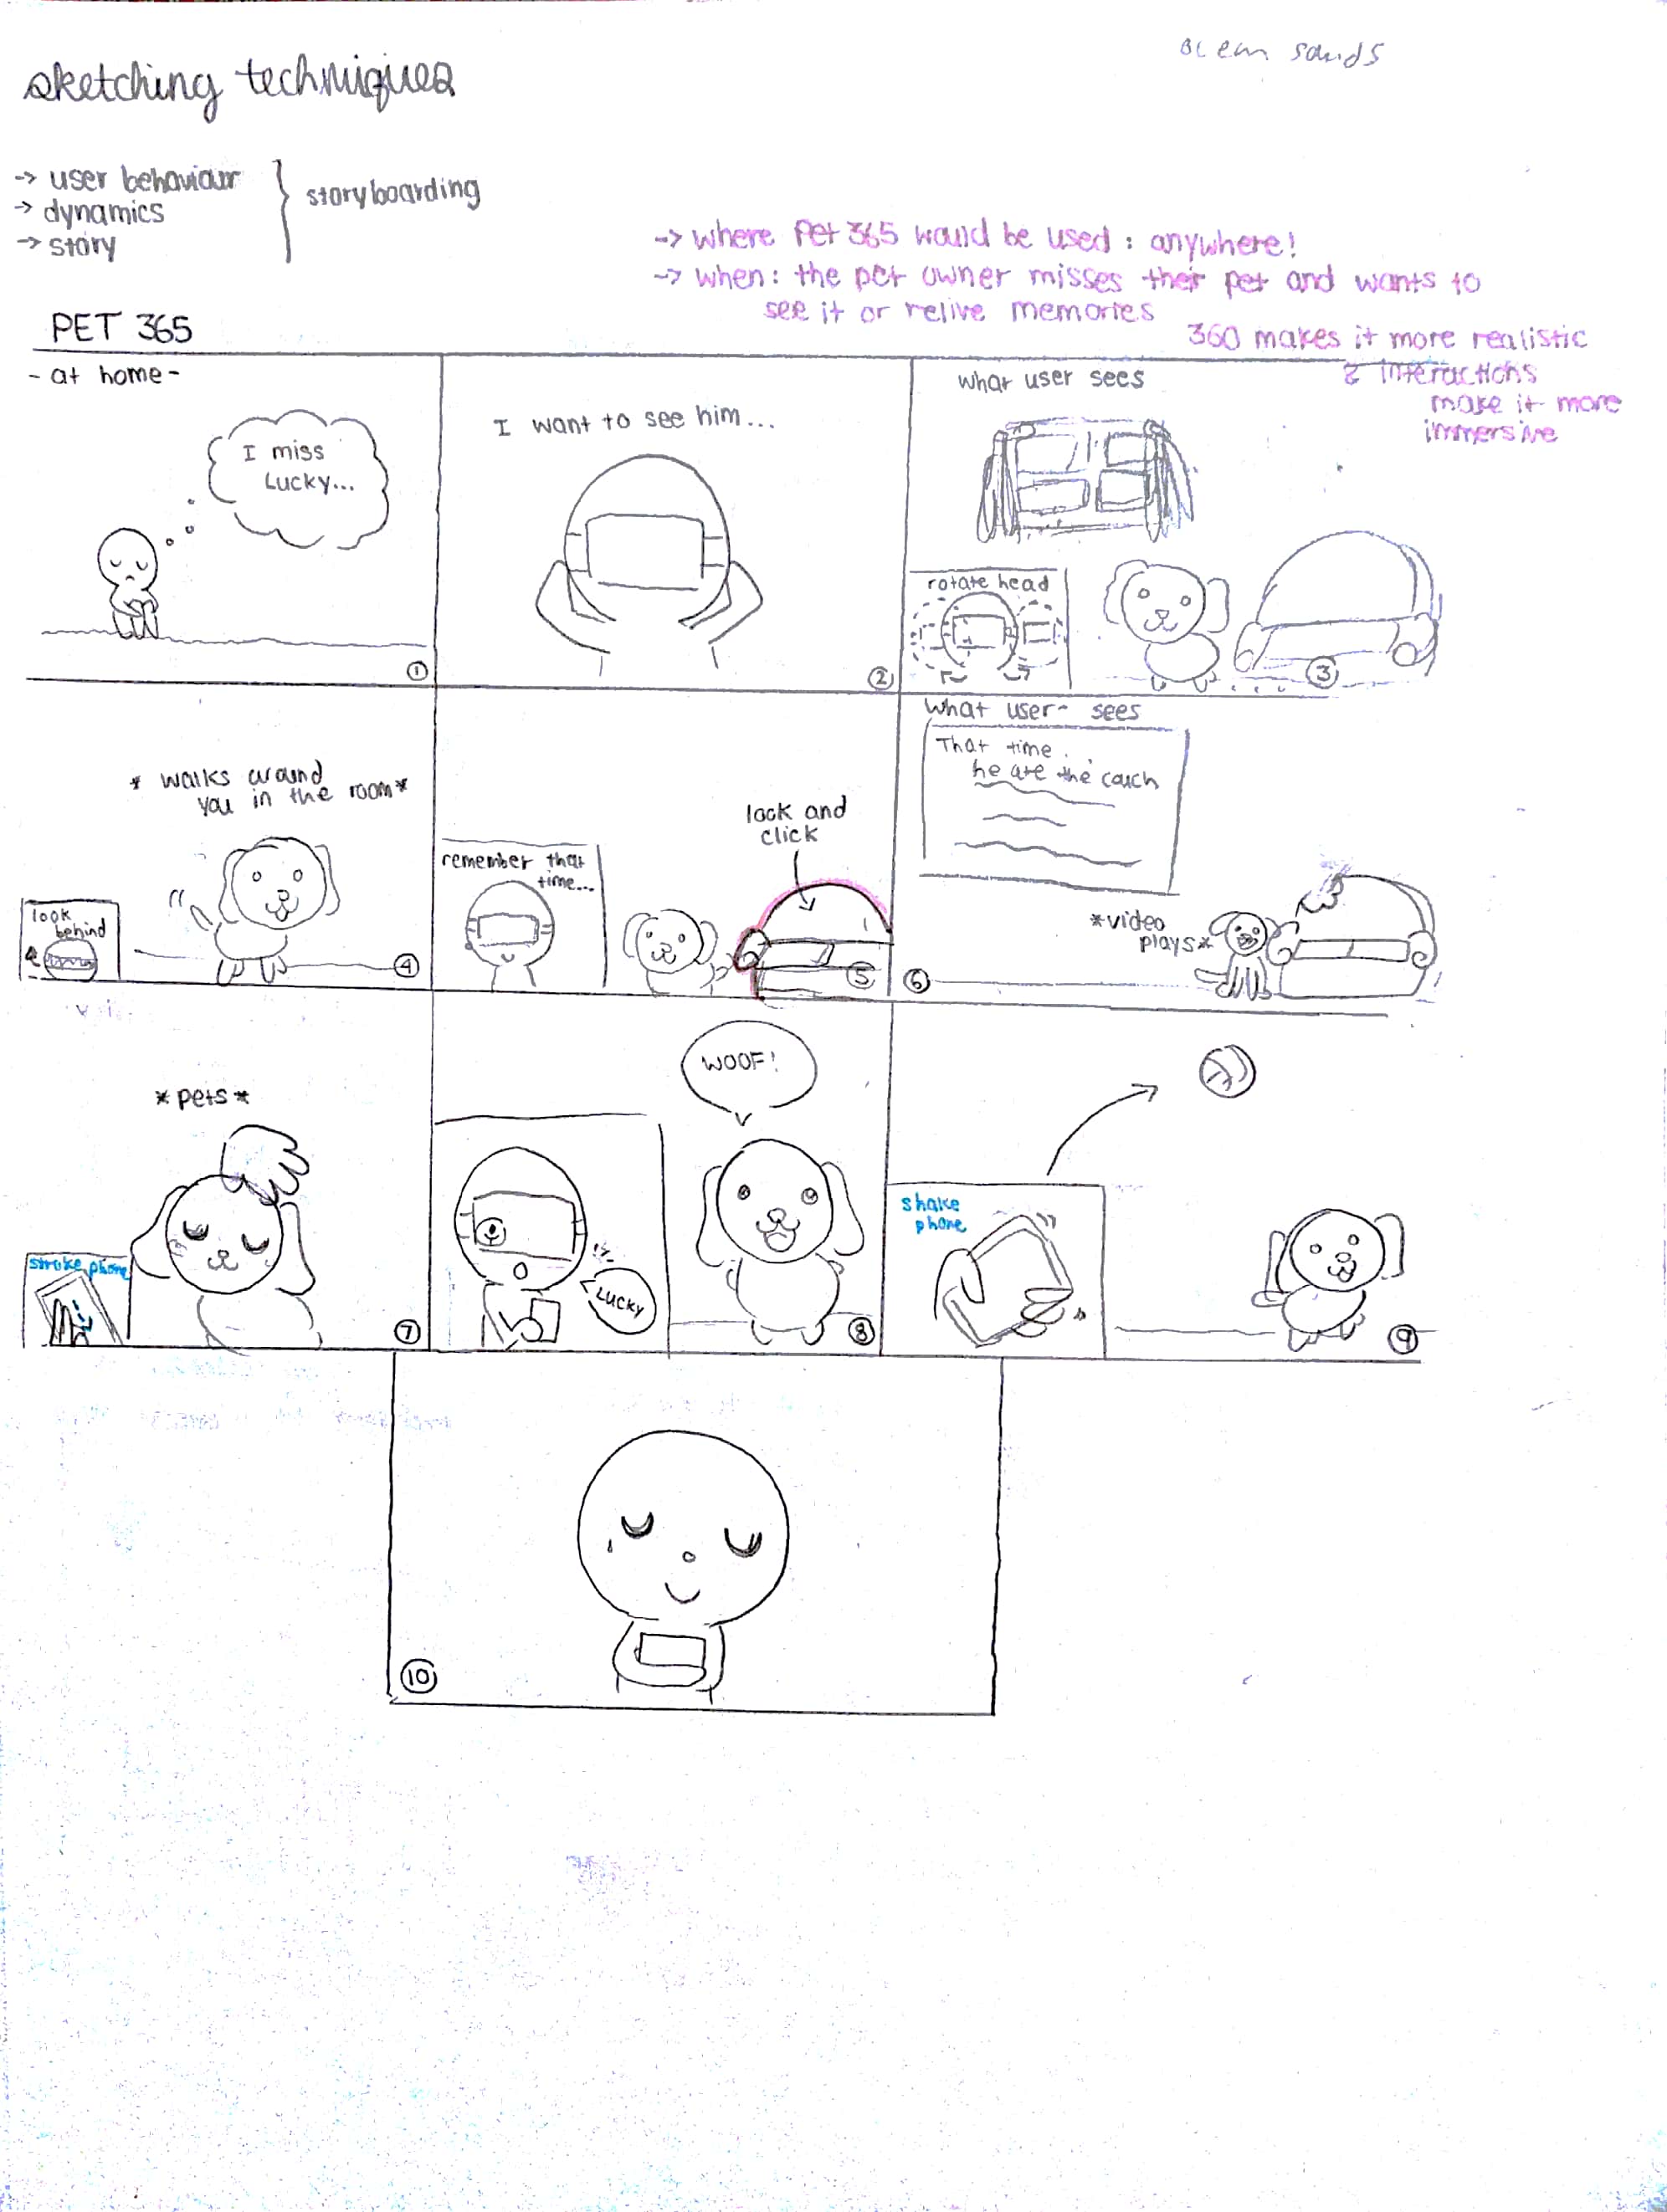 sketching techniques
-> user behaviour
-> dynamics
-> story
storyboarding
-> where Pet 365 would be used : anywhere!
-> when: the pet owner misses their pet and wants to
see it or relive memories
360 makes it more realistic
& interactions
make it more
immersive
PET 365
- at home -
I miss
Lucky...
1
I want to see him...
2
what user sees
rotate head
3
* walks around
you in the room*
look
behind
4
remember that
time...
look and
click
5
What user sees
That time
he ate the couch
*video
plays*
6
*pets*
stroke phone
7
LUCKY
WOOF!
8
shake
phone
9
10